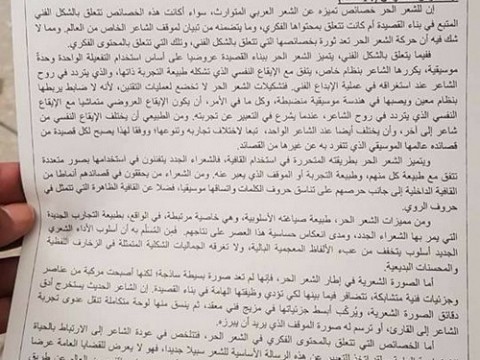 إن للشعر الحر خصائص تميزه عن الشعر العربي المتوارث، سواء أكانت هذه الخصائص تتعلق بالشكل الفني
المتبع في بناء القصيدة أم كانت تتعلق بمحتواها الفكري، وما يتضمنه من تبيان لموقف الشاعر الخاص من العالم. ومما لا
شك فيه أن حركة الشعر الحر تعد ثورة بخصائصها التي تتعلق بالشكل الفني، وتلك التي تتعلق بالمحتوى الفكري.
ففيما يتعلق بالشكل الفني، يتميز الشعر الحر ببناء القصيدة عروضيا على أساس استخدام التفعيلة الواحدة وحدةً
موسيقية، يكررها الشاعر بنظام خاص، يتفق مع الإيقاع النفسي الذي تشكله طبيعة التجربة ذاتها، والذي يتردد في روح
الشاعر عند استغراقه في عملية الإبداع الفني. فتشكيلات الشعر الحر لا تخضع لعمليات التقنين، لأنه لا ضابط يربطها
بنظام معين ويصبها في هندسة موسيقية منضبطة، وكل ما في الأمر، أن يكون الإيقاع العروضي متماشيا مع الإيقاع
النفسي الذي يتردد في روح الشاعر، عندما يشرع في التعبير عن تجربته. ومن الطبيعي أن يختلف الإيقاع النفسي من
شاعر إلى آخر، وأن يختلف أيضا عند الشاعر الواحد، تبعا لاختلاف تجاربه وتنوعها؛ ووفقا لهذا يصبح لكل قصيدة من
قصائده عالمها الموسيقي الذي تتفرد به عن غيرها من القصائد.
ويتميز الشعر الحر بطريقته المتحررة في استخدام القافية، فالشعراء الجدد يتفننون في استخدامها بصور متعددة
تتفق مع طبيعة كل منهم، وطبيعة التجربة أو الموقف الذي يعبر عنه. ومن الشعراء من يحققون في قصائدهم أنماطا من
القافية الداخلية إلى جانب حرصهم على تناسق حروف الكلمات واتساقها موسيقيا، فضلا عن القافية الظاهرة التي تتمثل في
حروف الروي.
ومن مميزات الشعر الحر، طبيعة صياغته الأسلوبية، وهي خاصية مرتبطة، في الواقع، بطبيعة التجارب الجديدة
التي يمر بها الشعراء الجدد، ومدى انعكاس حساسية هذا العصر على نتاجهم. فمن المسلّم به أن أسلوب الأداء الشعري
الجديد أسلوب يتخفف من عبء الألفاظ المعجمية البالية، ولا تغرقه الجماليات الشكلية المتمثلة في الزخارف اللفظية
والمحسنات البديعية.
أما الصورة الشعرية في إطار الشعر الحر، فإنها لم تعد صورة بسيطة ساذجة؛ لكنها أصبحت مركبة من عناصر
وجزئيات فنية متشابكة، تتضافر فيما بينها لكي تؤدي وظيفتها الهامة في بناء القصيدة. إن الشاعر الحديث يستخرج أدق
دقائق الصورة الشعرية، ويُركّب أبسط جزئياتها في مزيج فني معقد، ثم ينسق منها لوحة متكاملة تنقل عدوى تجربة
الشاعر إلى القارئ، أو ترسم له صورة الموقف الذي يريد أن يبرزه.
أما الخصائص التي تتعلق بالمحتوى الفكري في الشعر الحر، فتتلخص في عودة الشاعر إلى الارتباط بالحياة